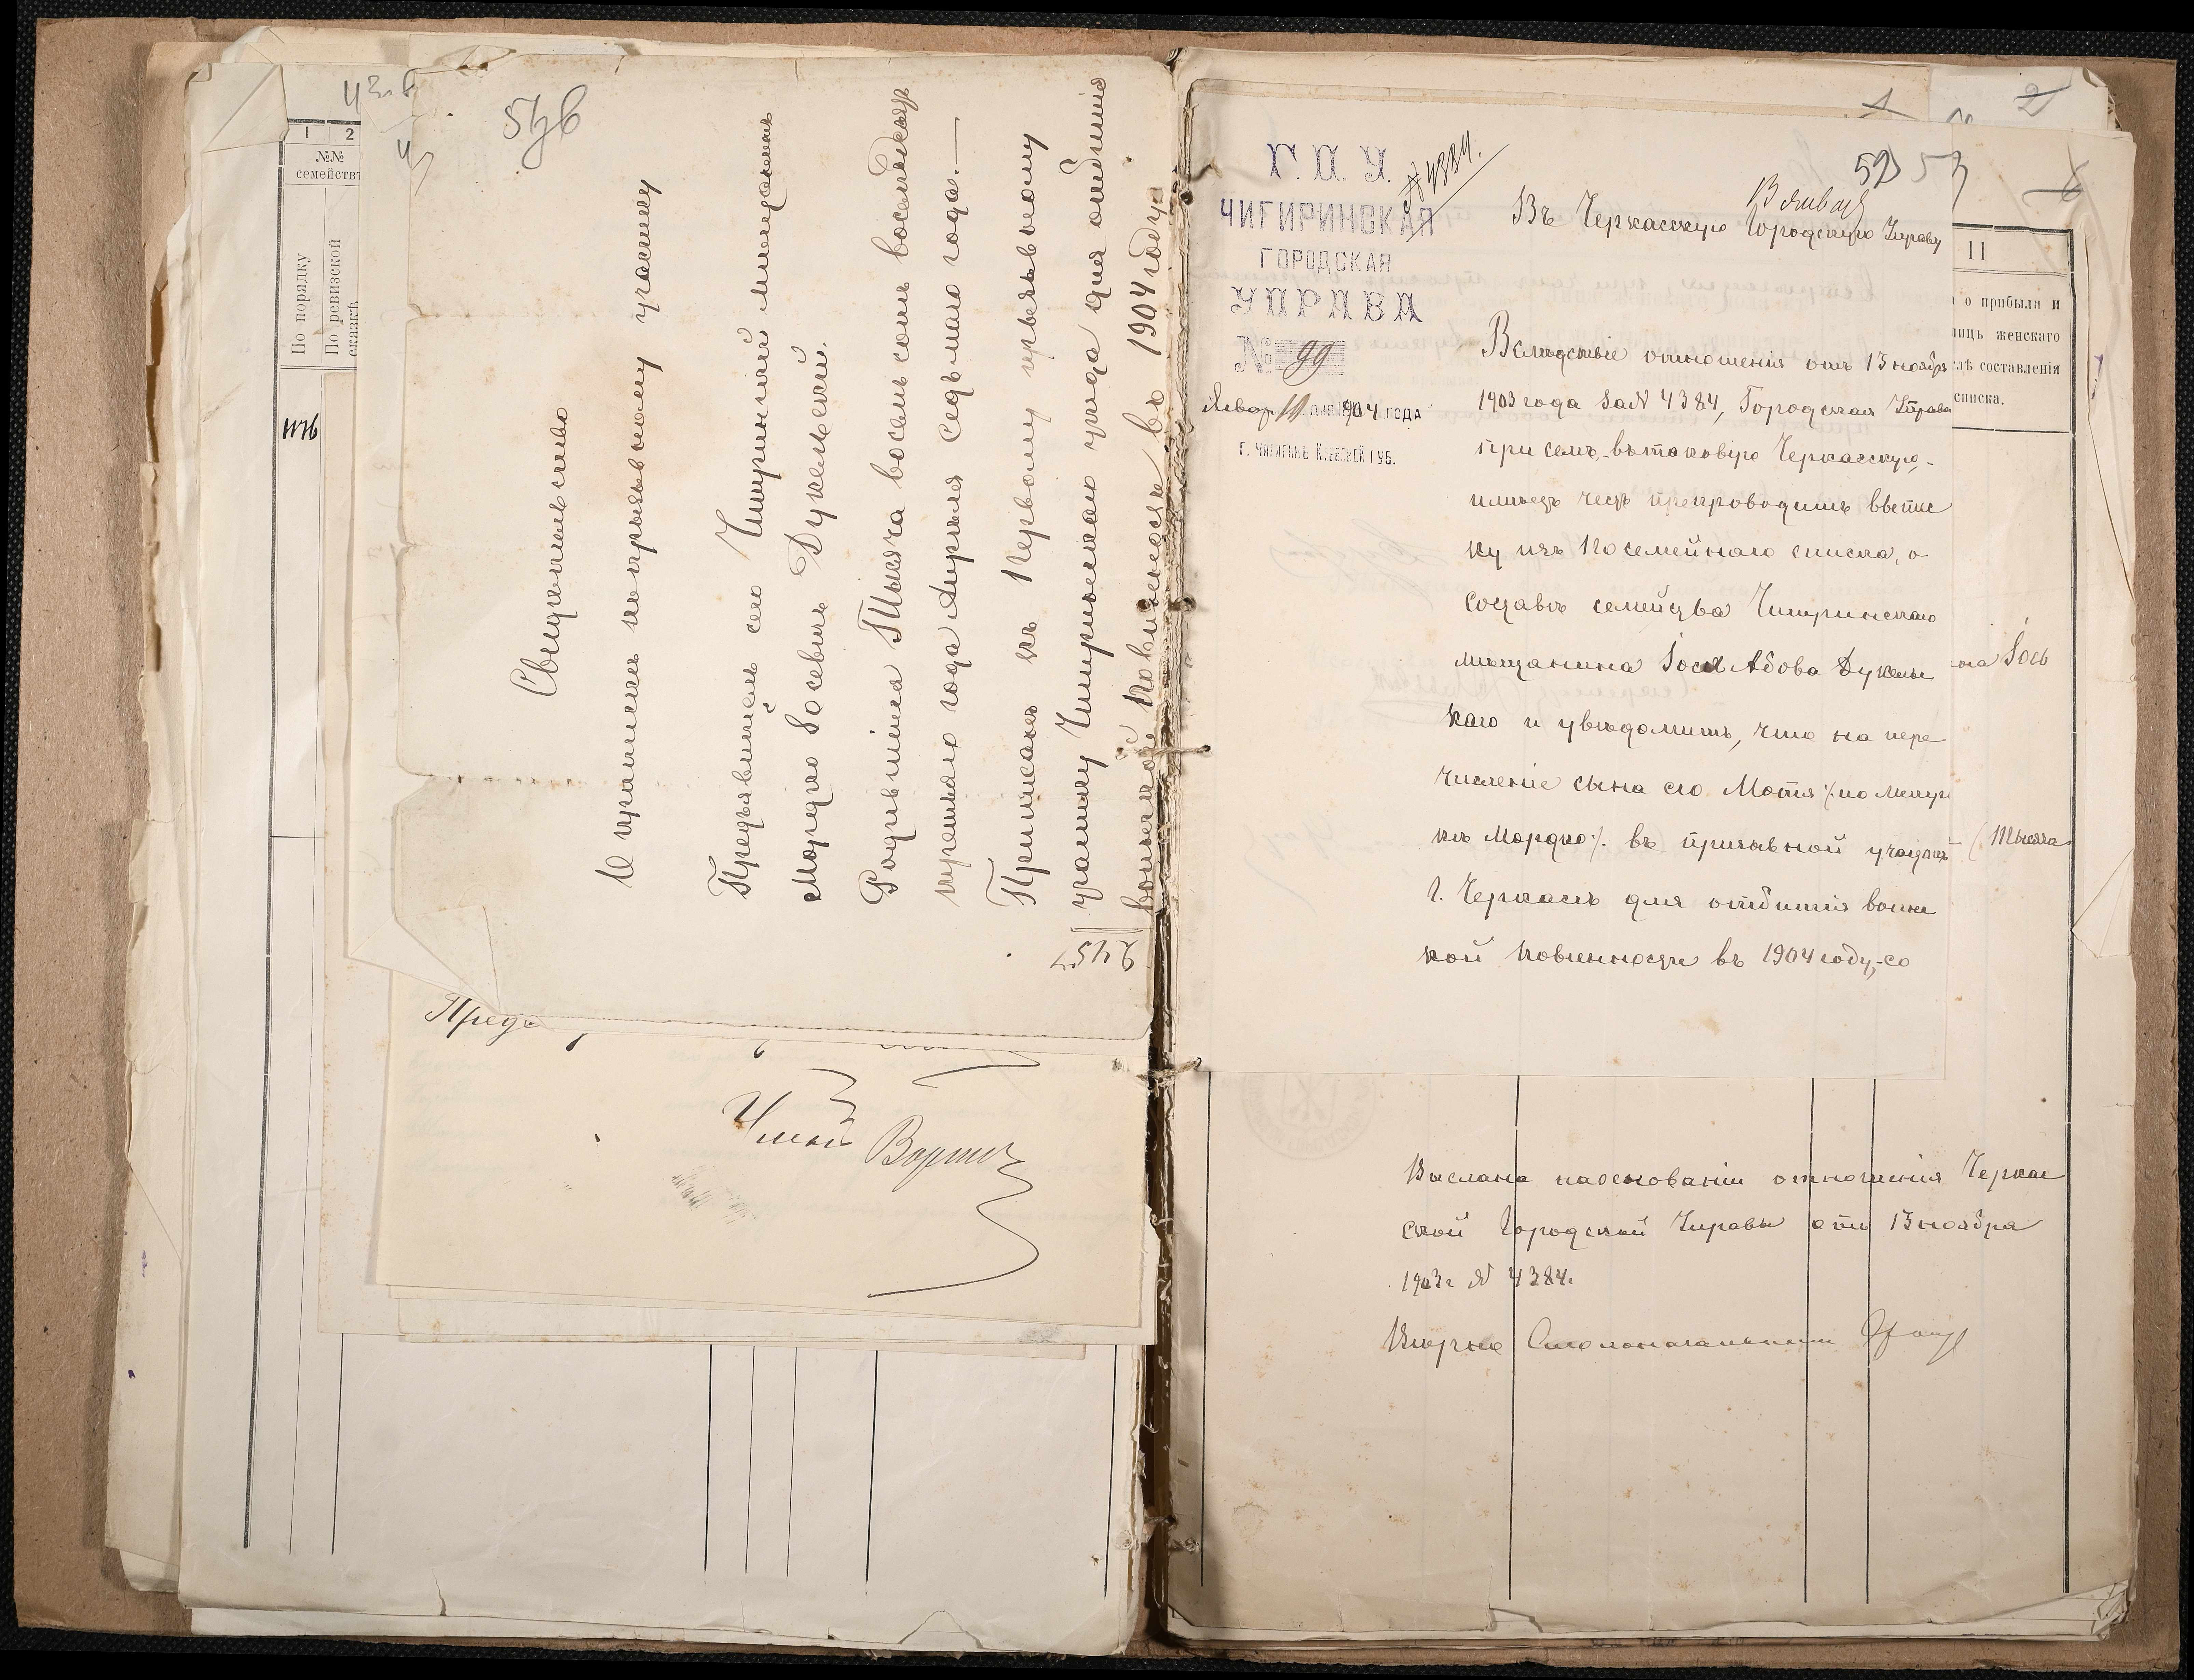 51 об
Свидетельство
О приписке къ призывному участку
Предъявитель сего Чигиринский мещанинъ
Мордко Іосевъ Дукельский.
Родившійся Тысяча восемьсотъ восемьдесят
третьяго года Апреля Седьмаго года.—
Приписанъ къ Первому призывному
участку Чигиринскаго уезда для отбытія
воинской повинности въ 1904 году
1
2
№№
семействъ
По порядку
По ревизской
сказкѣ
Предъ
Г. П. У.
ЧИГИРИНСКАЯ
ГОРОДСКАЯ
УПРАВА
№ 99
Январ 10 дня 1904 года
г. Чигиринъ Кіевской губ.
№ 4384.
52
53
13 января
Въ Черкасскую Городскую Управу
Вследствіе отношенія отъ 13 ноября
1903 года за № 4384, Городская Управа
при семъ, въ таковую Черкасскую,
имеетъ честь препроводить выпис
ку изъ посемейнаго списка, о
составе семейства Чигиринскаго
мещанина Іося Абова Дукельс
каго и уведомить, что на пере
численіе сына его Мотя /: по метри
ке Мордко :/. въ призывной участокъ
г. Черкасъ для отбытія воинс
кой повинности въ 1904 году, со
11
о прибыли и
лицъ женскаго
слѣ составленія
списка.
на Іось
(Тысяча
Выслана на основаніи отношенія Черкас
ской Городской Управы отъ 13 ноября
1903 г № 4384.
Верно Столоначальникъ